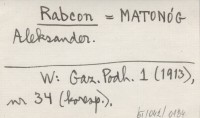 Rabcon = MATONÓG
Aleksander.
W: Gaz. Podh. 1 (1913),
nr 34 (koresp.).